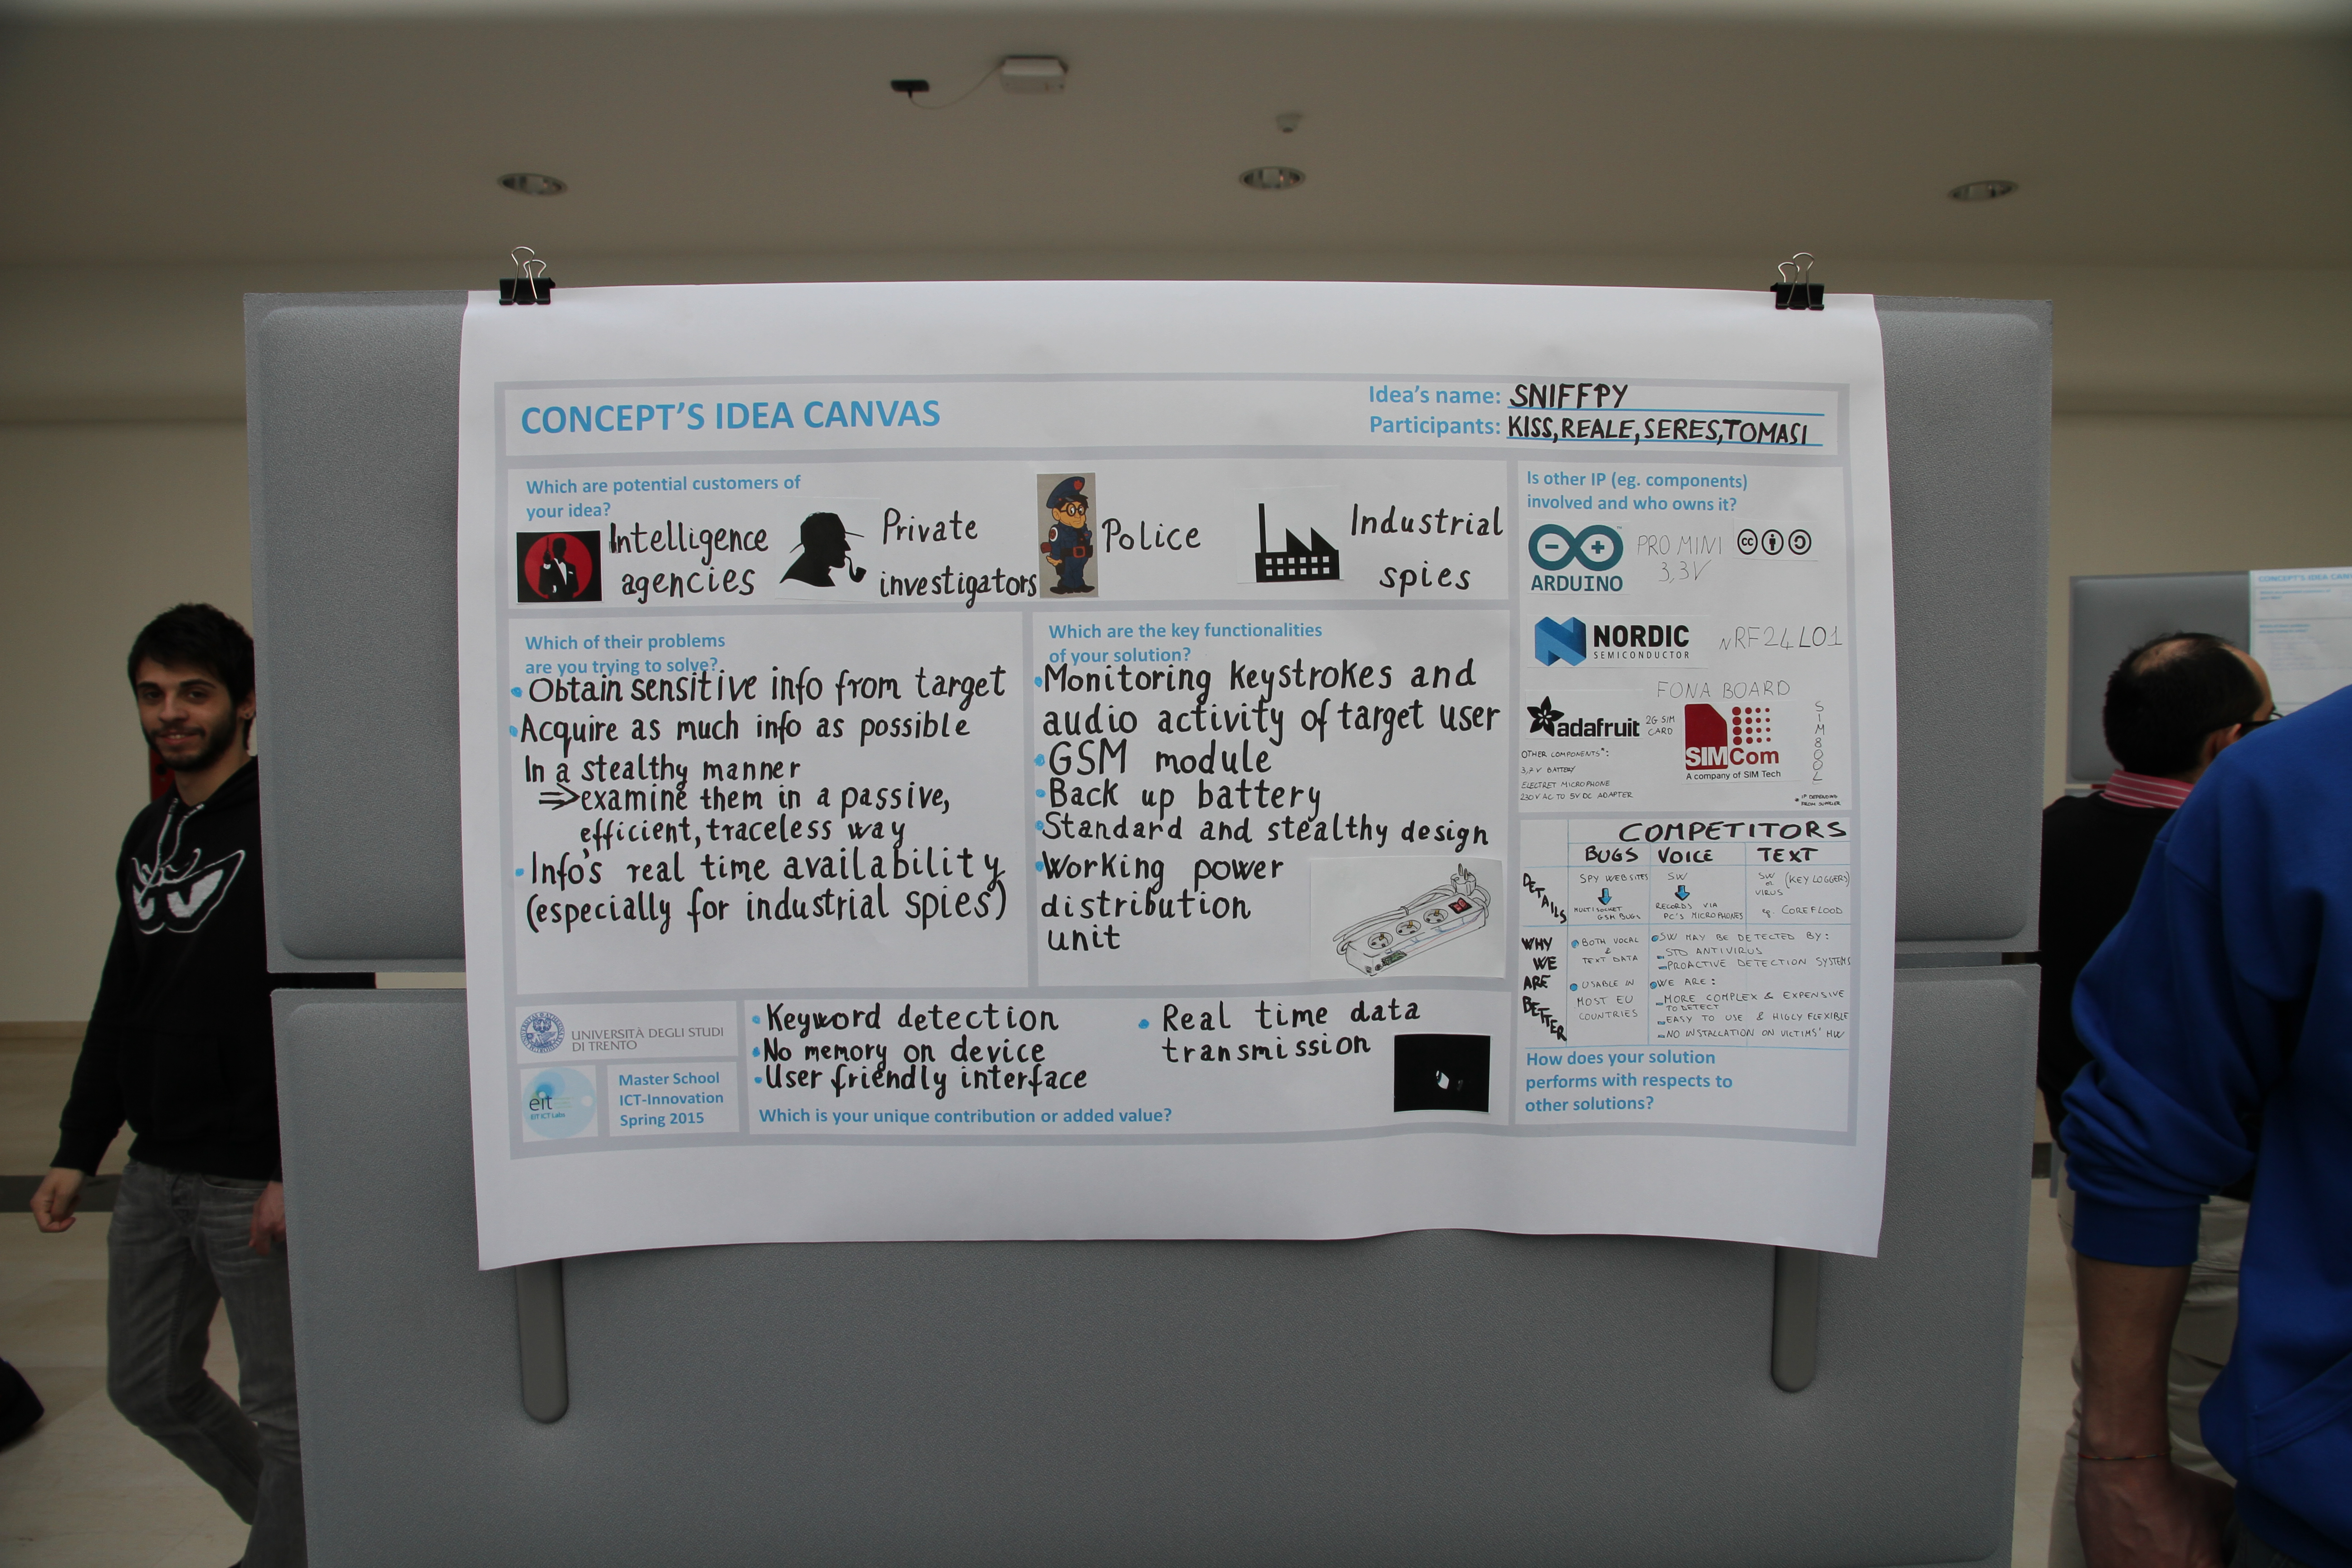 CONCEPT'S IDEA CANVAS
Idea's name: SNIFFPY
Participants: KISS, REALE, SERES, TOMASI
Which are potential customers of
your idea?
Intelligence
agencies
Private
investigators
Police
Industrial
spies
Which of their problems
are you trying to solve?
• Obtain sensitive info from target
• Acquire as much info as possible
In a stealthy manner
⇒ examine them in a passive,
efficient, traceless way
• Info's real time availability
(especially for industrial spies)
Which are the key functionalities
of your solution?
• Monitoring keystrokes and
audio activity of target user
• GSM module
• Back up battery
• Standard and stealthy design
• Working power
distribution
unit
Is other IP (eg. components)
involved and who owns it?
ARDUINO
PRO MINI
3,3V
cc
NORDIC
SEMICONDUCTOR
nRF24L01
FONA BOARD
adafruit
2G SIM
CARD
SIMCom
A company of SIM Tech
SIM800L
OTHER COMPONENTS*:
3,7V BATTERY
ELECTRET MICROPHONE
230V AC TO 5V DC ADAPTER
* IP DEPENDING
FROM SUPPLIER
COMPETITORS
BUGS VOICE TEXT
DETAILS
SPY WEBSITES
MULTISOCKET
GSM BUGS
SW
RECORDS VIA
PC'S MICROPHONES
SW or VIRUS (KEY LOGGERS)
eg. COREFLOOD
WHY
WE
ARE
BETTER
• BOTH VOCAL
&
TEXT DATA
• USABLE IN
MOST EU
COUNTRIES
• SW MAY BE DETECTED BY:
- STD ANTIVIRUS
- PROACTIVE DETECTION SYSTEMS
• WE ARE:
- MORE COMPLEX & EXPENSIVE
TO DETECT
- EASY TO USE & HIGLY FLEXIBLE
- NO INSTALLATION ON VICTIMS' HW
How does your solution
performs with respects to
other solutions?
UNIVERSITÀ DEGLI STUDI
DI TRENTO
eit
EIT ICT Labs
Master School
ICT-Innovation
Spring 2015
• Keyword detection
• No memory on device
• User friendly interface
• Real time data
transmission
Which is your unique contribution or added value?
CONCEPT'S IDEA CAN